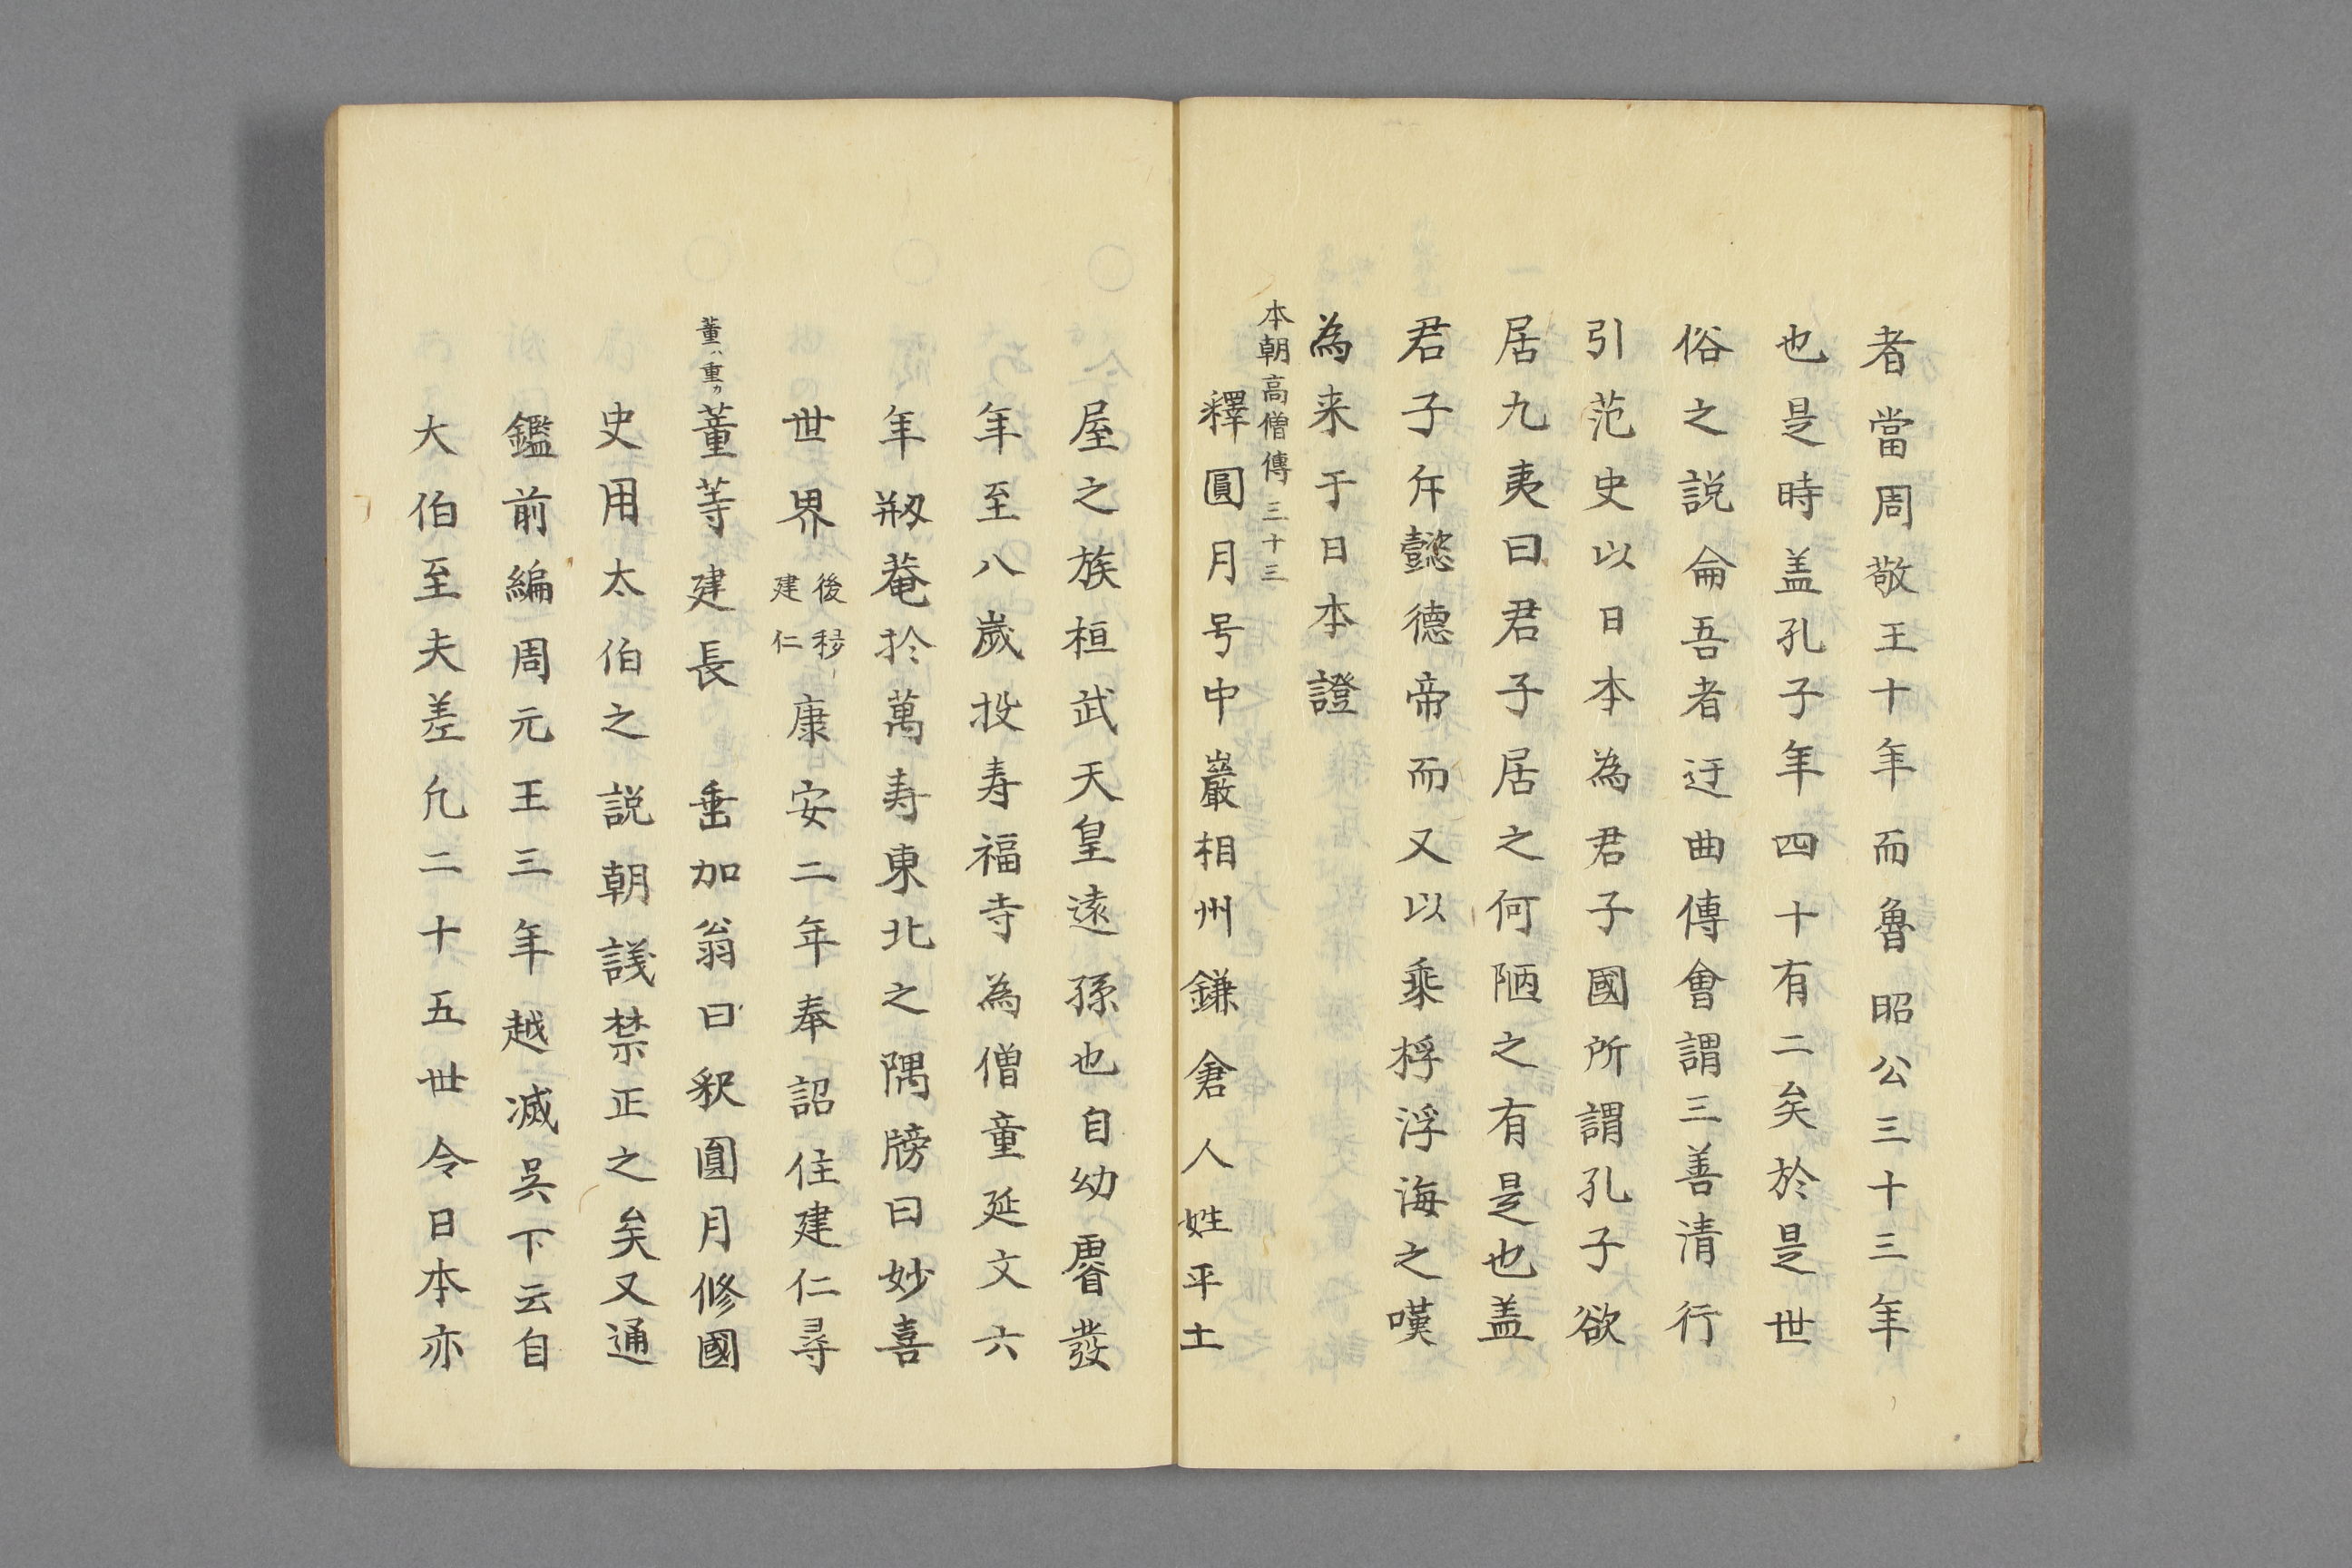 者當周敬王十年而魯昭公三十三年
也是時盖孔子年四十有二矣於是世
俗之説侖吾者迂曲傳會謂三善清行
引范史以日本為君子國所謂孔子欲
居九夷曰君子居之何陋之有是也盖
君子斥懿德帝而又以乘桴浮海之嘆
為来于日本證
本朝高僧傳三十三
釋圓月号中巖相州鎌倉人姓平土
屋之族桓武天皇遠孫也自幼發
年至八歲投寿福寺為僧童延文六
年剏菴於萬寿東北之隅牓曰妙喜
世界後移建仁康安二年奉詔住建仁尋
董ハ重カ
董等建長 垂加翁曰釈圓月修國
史用太伯之説朝議禁正之矣又通
鑑前編周元王三年越滅呉下云自
大伯至夫差凢二十五世今日本亦